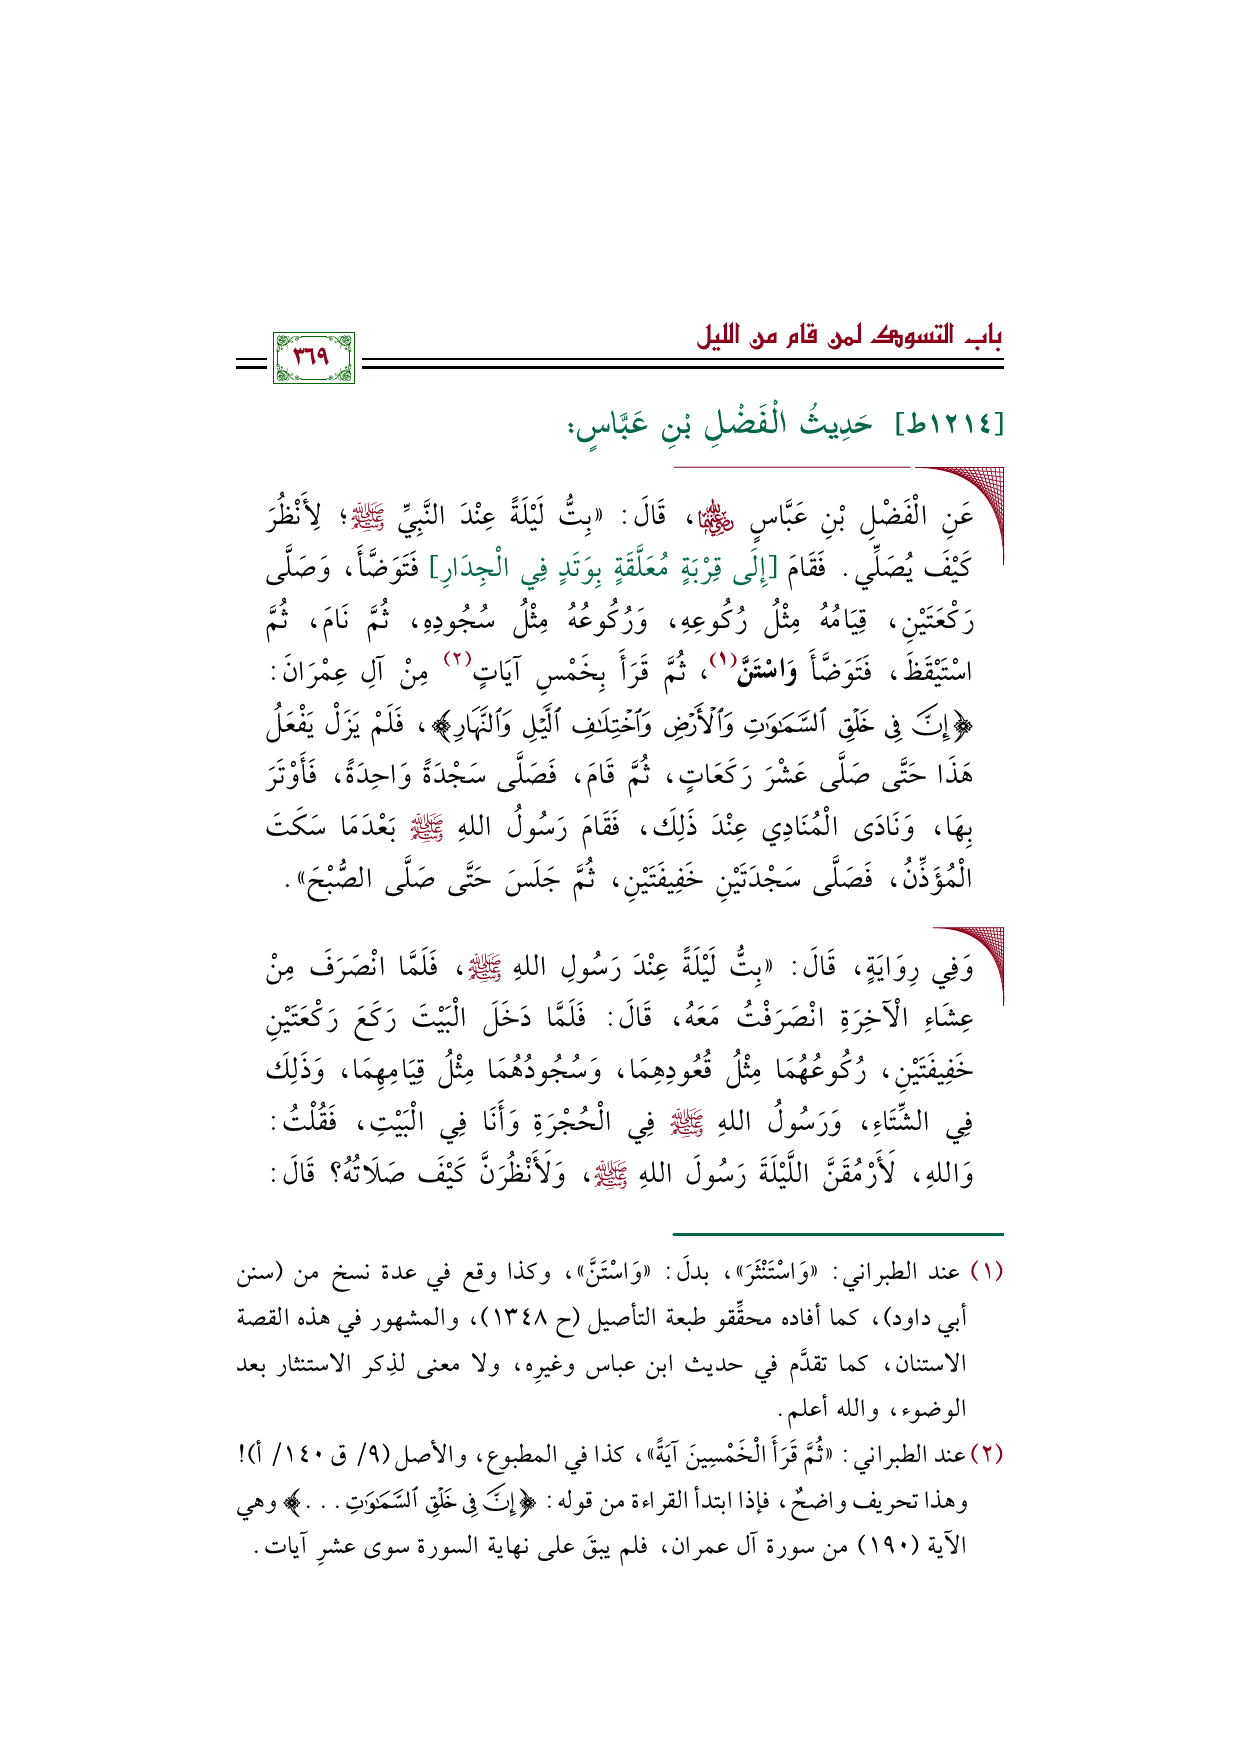 باب التسوك لمن قام من الليل
٣٦٩
[١٢١٤ط] حَدِيثُ الْفَضْلِ بْنِ عَبَّاسٍ:
عَنِ الْفَضْلِ بْنِ عَبَّاسٍ رضي الله عنهما، قَالَ: «بِتُّ لَيْلَةً عِنْدَ النَّبِيِّ ﷺ؛ لِأَنْظُرَ
كَيْفَ يُصَلِّي. فَقَامَ [إِلَى قِرْبَةٍ مُعَلَّقَةٍ بِوَتَدٍ فِي الْجِدَارِ] فَتَوَضَّأَ، وَصَلَّى
رَكْعَتَيْنِ، قِيَامُهُ مِثْلُ رُكُوعِهِ، وَرُكُوعُهُ مِثْلُ سُجُودِهِ، ثُمَّ نَامَ، ثُمَّ
اسْتَيْقَظَ، فَتَوَضَّأَ وَاسْتَنَّ(١)، ثُمَّ قَرَأَ بِخَمْسِ آيَاتٍ(٢) مِنْ آلِ عِمْرَانَ:
﴿إِنَّ فِى خَلْقِ ٱلسَّمَـٰوَٰتِ وَٱلْأَرْضِ وَٱخْتِلَـٰفِ ٱلَّيْلِ وَٱلنَّهَارِ﴾، فَلَمْ يَزَلْ يَفْعَلُ
هَذَا حَتَّى صَلَّى عَشْرَ رَكَعَاتٍ، ثُمَّ قَامَ، فَصَلَّى سَجْدَةً وَاحِدَةً، فَأَوْتَرَ
بِهَا، وَنَادَى الْمُنَادِي عِنْدَ ذَلِكَ، فَقَامَ رَسُولُ اللهِ ﷺ بَعْدَمَا سَكَتَ
الْمُؤَذِّنُ، فَصَلَّى سَجْدَتَيْنِ خَفِيفَتَيْنِ، ثُمَّ جَلَسَ حَتَّى صَلَّى الصُّبْحَ».
وَفِي رِوَايَةٍ، قَالَ: «بِتُّ لَيْلَةً عِنْدَ رَسُولِ اللهِ ﷺ، فَلَمَّا انْصَرَفَ مِنْ
عِشَاءِ الْآخِرَةِ انْصَرَفْتُ مَعَهُ، قَالَ: فَلَمَّا دَخَلَ الْبَيْتَ رَكَعَ رَكْعَتَيْنِ
خَفِيفَتَيْنِ، رُكُوعُهُمَا مِثْلُ قُعُودِهِمَا، وَسُجُودُهُمَا مِثْلُ قِيَامِهِمَا، وَذَلِكَ
فِي الشِّتَاءِ، وَرَسُولُ اللهِ ﷺ فِي الْحُجْرَةِ وَأَنَا فِي الْبَيْتِ، فَقُلْتُ:
وَاللهِ، لَأَرْمُقَنَّ اللَّيْلَةَ رَسُولَ اللهِ ﷺ، وَلَأَنْظُرَنَّ كَيْفَ صَلَاتُهُ؟ قَالَ:
(١) عند الطبراني: «وَاسْتَنْثَرَ»، بدلَ: «وَاسْتَنَّ»، وكذا وقع في عدة نسخ من (سنن
أبي داود)، كما أفاده محقِّقو طبعة التأصيل (ح ١٣٤٨)، والمشهور في هذه القصة
الاستنان، كما تقدَّم في حديث ابن عباس وغيرِه، ولا معنى لذِكر الاستنثار بعد
الوضوء، والله أعلم.
(٢) عند الطبراني: «ثُمَّ قَرَأَ الْخَمْسِينَ آيَةً»، كذا في المطبوع، والأصل (٩/ ق ١٤٠/ أ)!
وهذا تحريف واضحٌ، فإذا ابتدأ القراءة من قوله: ﴿إِنَّ فِى خَلْقِ ٱلسَّمَـٰوَٰتِ...﴾ وهي
الآية (١٩٠) من سورة آل عمران، فلم يبقَ على نهاية السورة سوى عشرِ آيات.